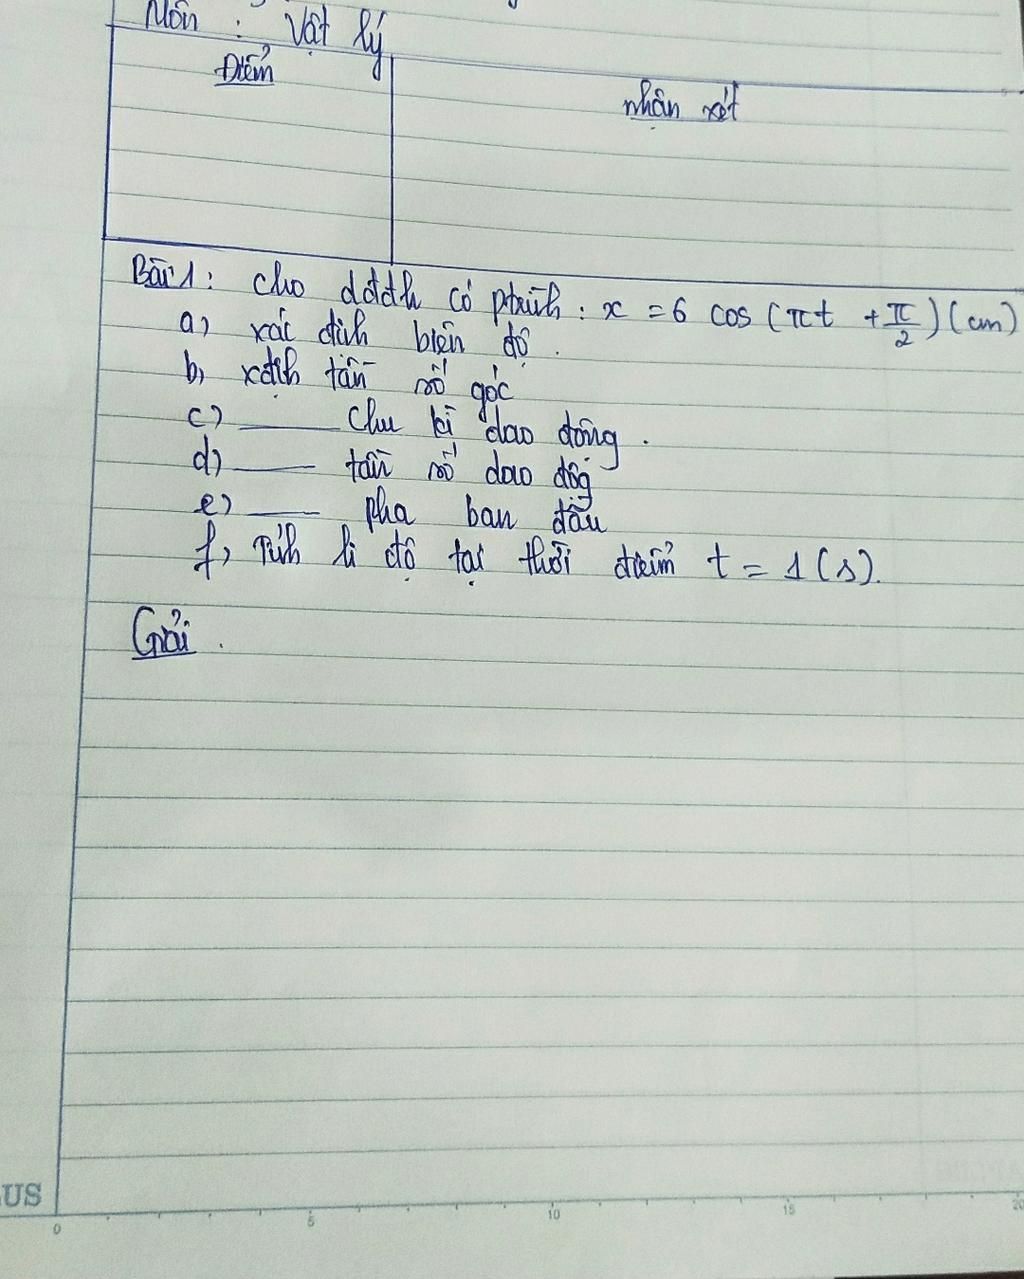 Môn : Vật lý
Điểm
nhận xét
Bài 1: cho dđđh có ptrình : x = 6 cos (πt + π/2) (cm)
a) xác định biên độ.
b, xđịnh tần số góc
c) ___ chu kì dao động.
d) ___ tần số dao động
e) ___ pha ban đầu
f, Tính li độ tại thời điểm t = 1 (s).
Giải.
US
0 5 10 15 20